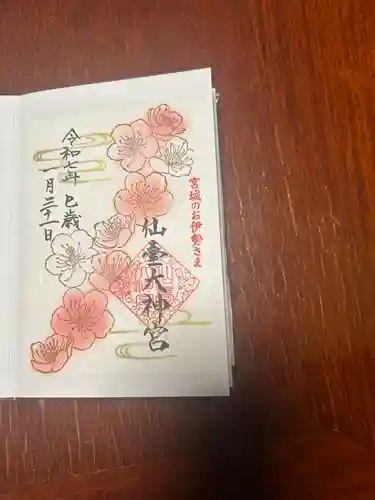 宮城のお伊勢さま
仙臺大神宮
令和七年 巳歳
一月三十一日